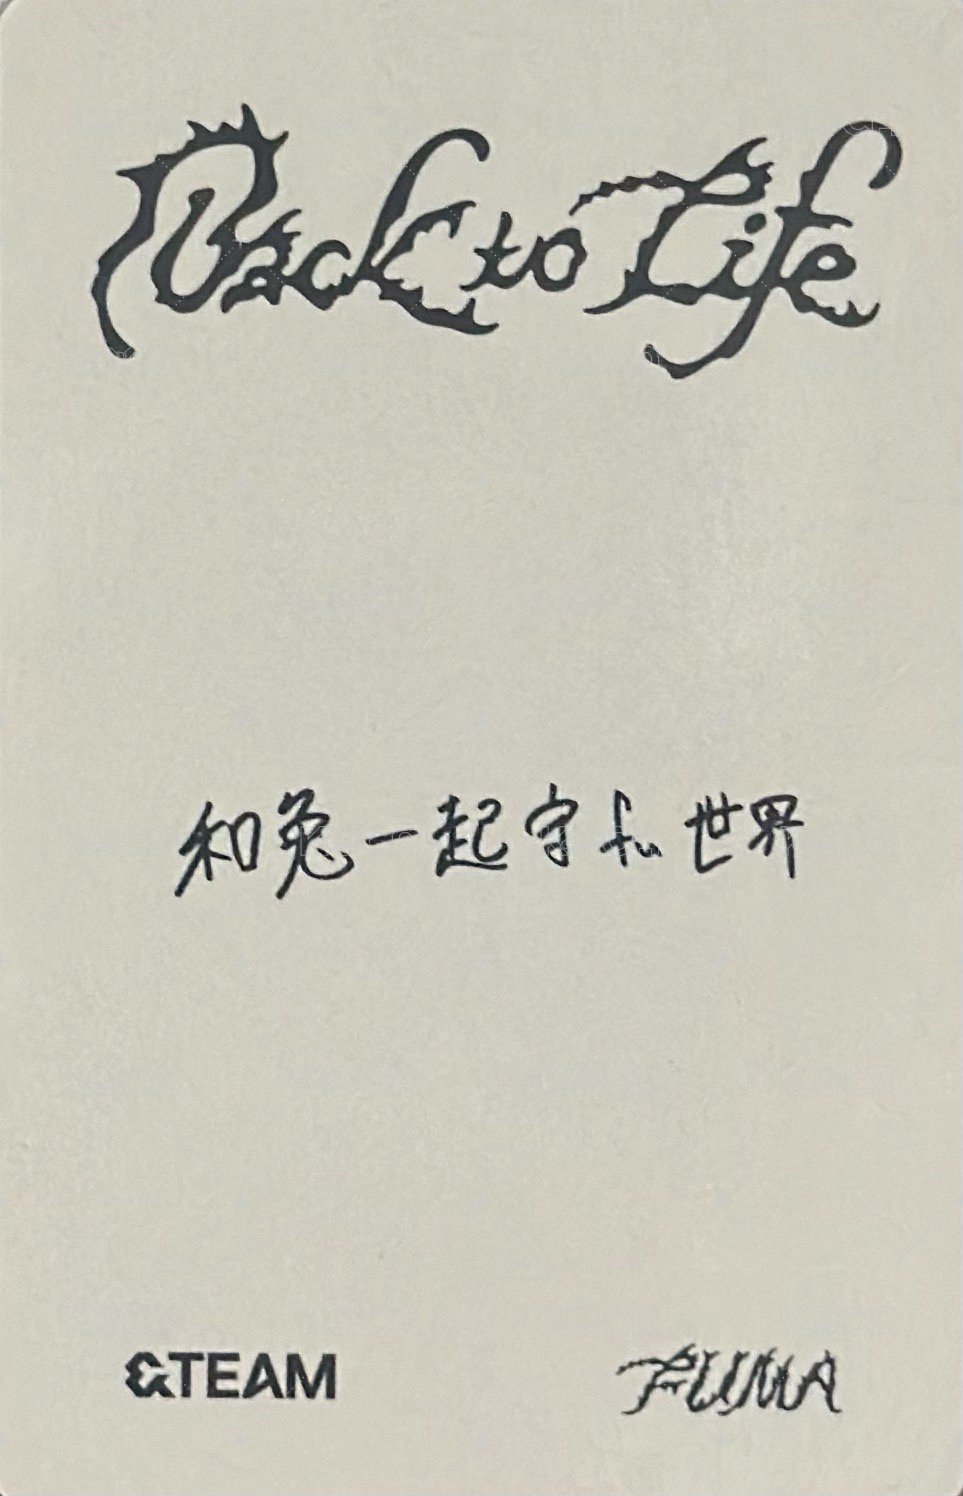 Back to Life
和兔一起守fu世界
&TEAM
FUMA